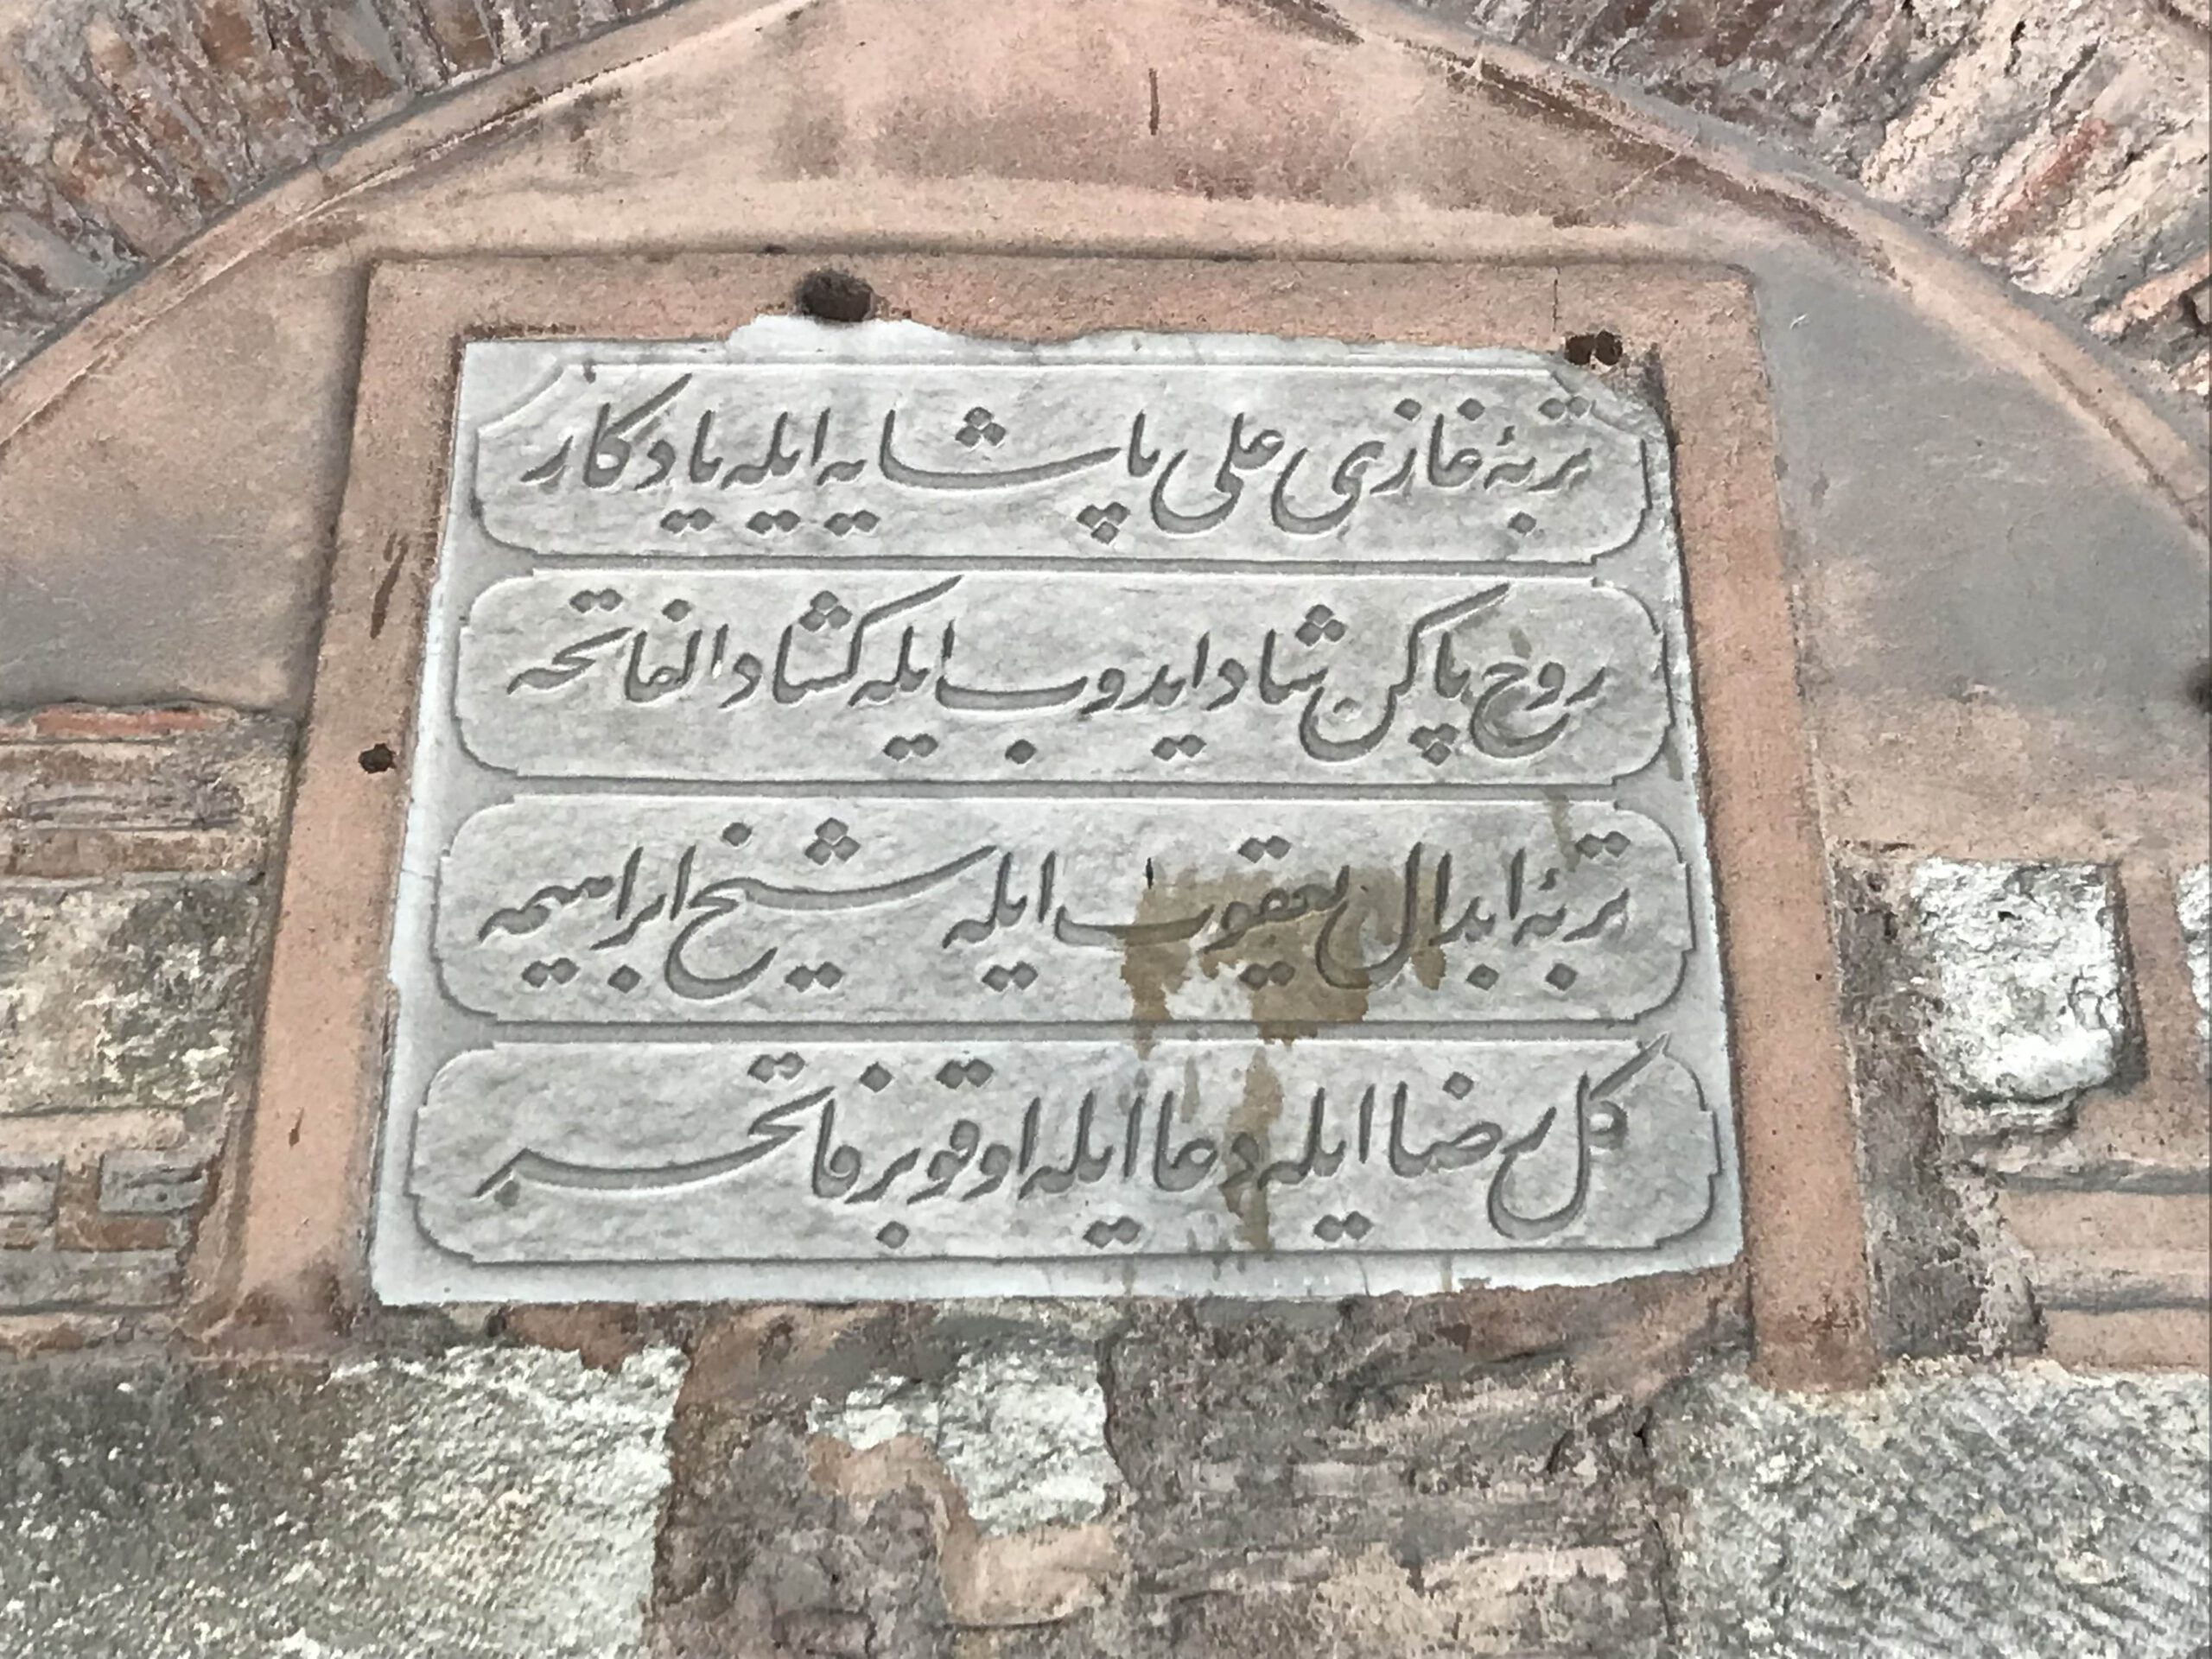 تربهٔ غازی علی پاشایه ایله یادکار
روح پاکن شاد ایدوب ایله کشاد الفاتحه
تربهٔ ابدال یعقوب ایله شیخ ابراهیمه
کل رضا ایله دعا ایله اوقو بر فاتحه